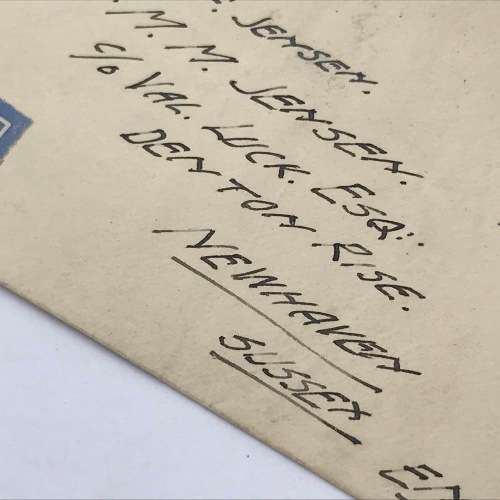 . JENSEN.
. M. M. JENSEN.
c/o VAL. LUCK. ESQ:.
DENTON RISE.
NEWHAVEN
SUSSEX